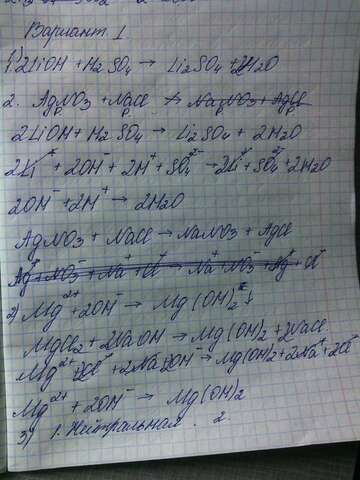 Вариант 1
1) 1. 2LiOH + H2SO4 → Li2SO4 + 2H2O
2. AgNO3 + NaCl → NaNO3 + AgCl
2LiOH + H2SO4 → Li2SO4 + 2H2O
2Li⁺ + 2OH⁻ + 2H⁺ + SO4²⁻ → 2Li⁺ + SO4²⁻ + 2H2O
2OH⁻ + 2H⁺ → 2H2O
AgNO3 + NaCl → NaNO3 + AgCl
Ag⁺ + NO3⁻ + Na⁺ + Cl⁻ → Na⁺ + NO3⁻ + Ag⁺ + Cl⁻
2) Mg²⁺ + 2OH⁻ → Mg(OH)2↓
MgCl2 + 2NaOH → Mg(OH)2 + 2NaCl
Mg²⁺ 2Cl⁻ + 2Na OH → Mg(OH)2 + 2Na⁺ + 2Cl⁻
Mg²⁺ + 2OH⁻ → Mg(OH)2
3) 1. Нейтральная. 2.